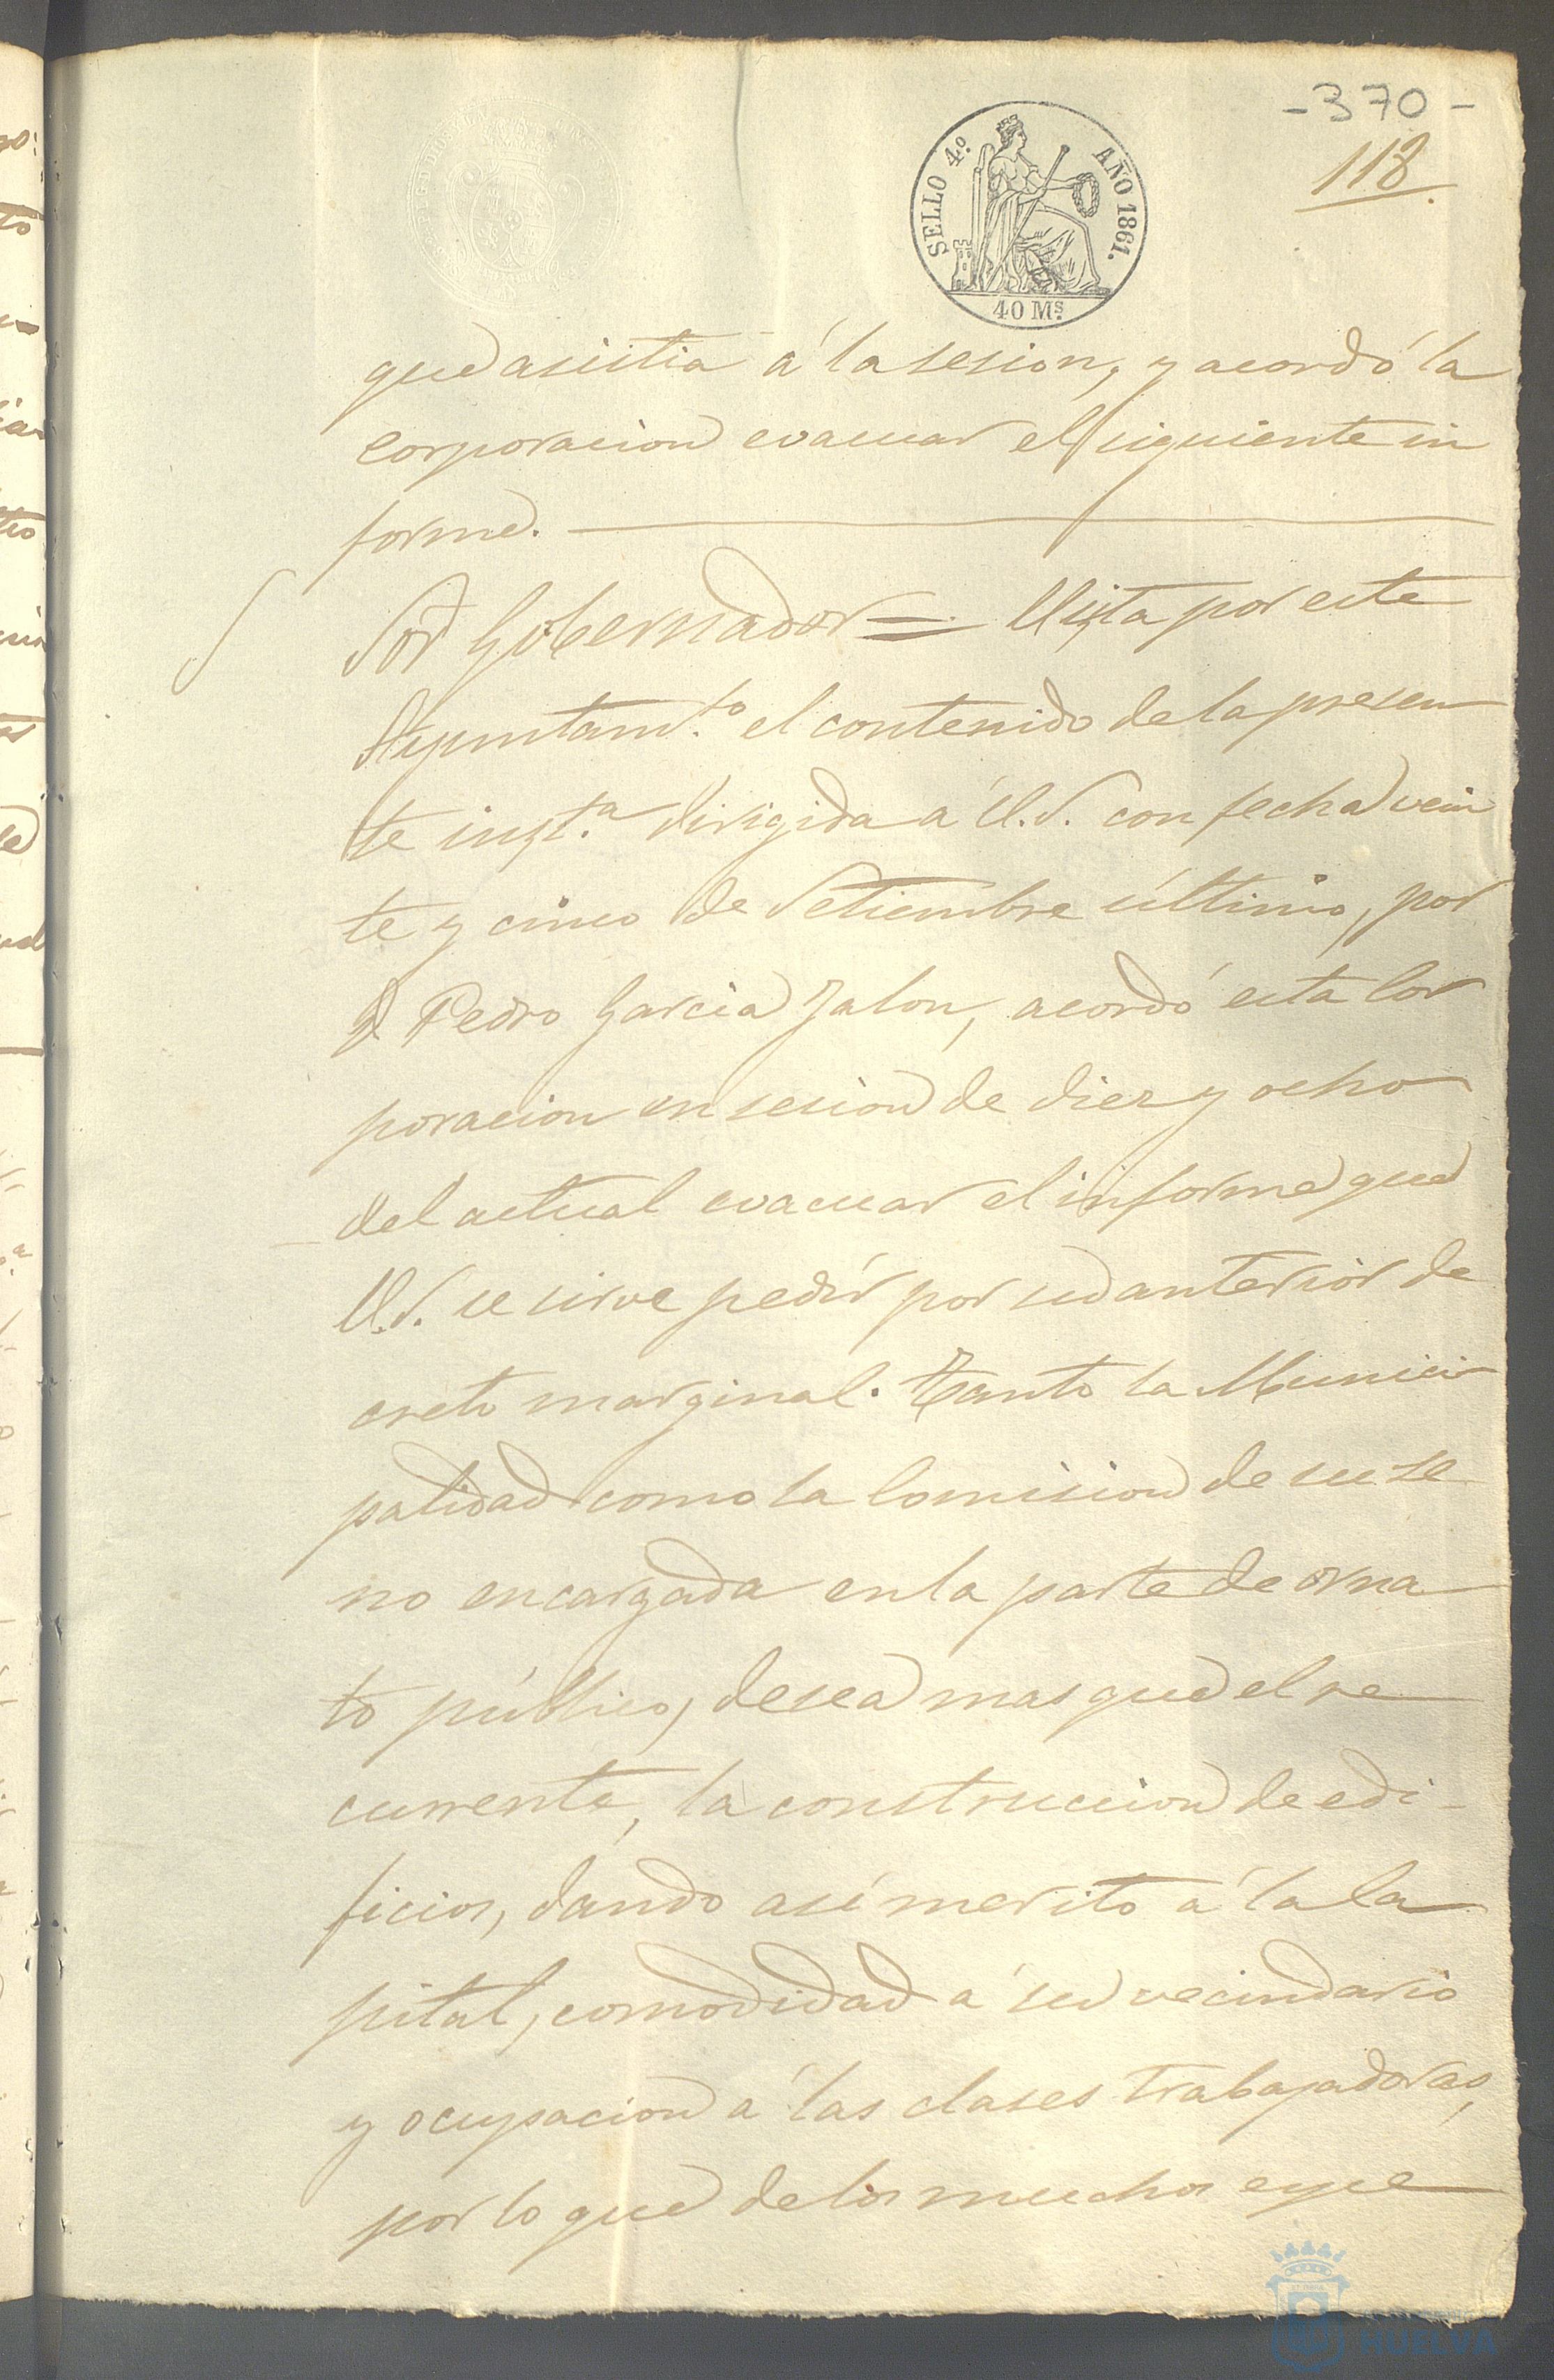 -370-
118.
SELLO 4.º AÑO 1861.
40 Ms.
que asistia á la sesion, y acordó la
corporacion evacuar el siguiente in
forme.
Sor Gobernador = Vista por este
Ayuntam.to el contenido de la presen
te inst.a dirigida a V.S. con fecha vein
te y cinco de Setiembre último, por
D Pedro Garcia Jalon, acordó esta Cor
poracion en sesion de diez y ocho
del actual evacuar el informe que
V.S. se sirve pedir por su anterior de
creto marginal. Tanto la Munici
palidad como la Comision de su se
no encargada en la parte de orna
to público, desea mas que el re
currente, la construccion de edi-
ficios, dando asi merito á la Ca
pital, comodidad a su vecindario
y ocupacion á las clases trabajadoras,
por lo que de los muchos espe
HUELVA